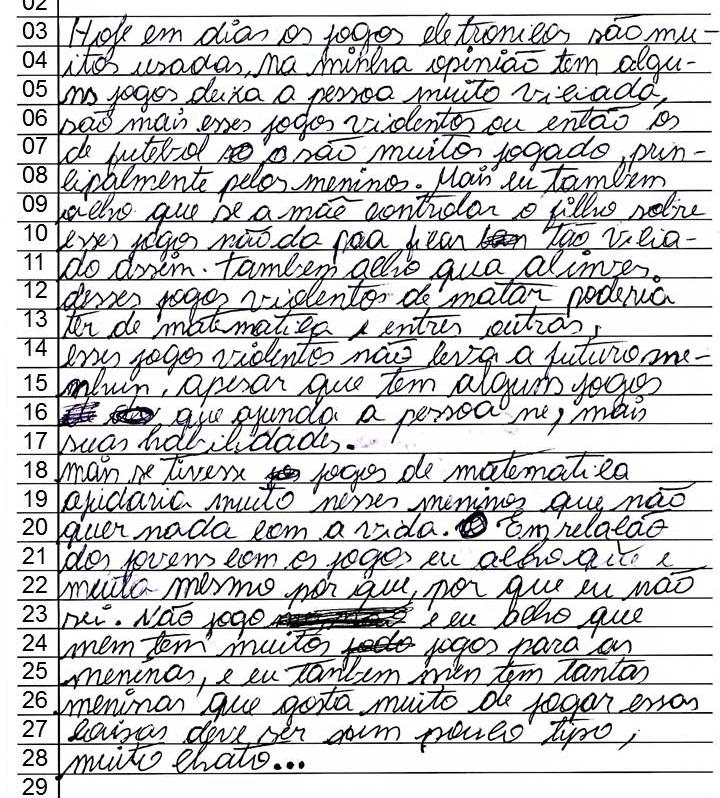 02
03 Hoje em dias os jogos eletronicos são mu-
04 itos usadas, na minha opinião tem algu-
05 ns jogos deixa a pessoa muito viciada,
06 são mais esses jogos violentos ou então os
07 de futebol são muitos jogado, prin-
08 cipalmente pelos meninos. Mais eu tambem
09 acho que se a mãe controlar o filho sobre
10 esses jogos não da paa ficar tão vicia-
11 do assim. tambem acho qua alinves
12 desses jogos violentos de matar poderia
13 ter de matematica e entres outras,
14 esses jogos violentos não leva a futuro me-
15 nhum, apesar que tem alguns jogos
16 que ajunda a pessoa ne, mais
17 suas habilidades.
18 mais se tivesse jogos de matematica
19 ajudaria muito nesses meninos que não
20 quer nada com a vida. Em relação
21 dos jovens com os jogos eu acho que e
22 muita mesmo por que, por que eu não
23 sei. Não jogo e eu acho que
24 nem tem muitos jogos para as
25 meninas, e eu tanbem nem tem tantas
26 meninas que gosta muito de jogar essas
27 coisas deve ser um pouco tipo,
28 muito chato...
29